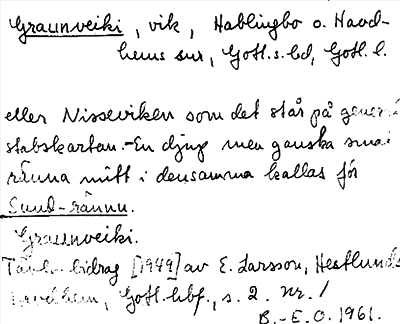 Graunveiki, vik, Hablingbo o. Havd-
hems snr, Gotl.s.hd, Gotl. l.
eller Nisseviken som det står på general
stabskartan.-En djup men ganska smal
ränna mitt i densamma kallas för
Sund-rännu.
Graunveiki.
bidrag [1949] av E. Larsson, Hestlunds
Havdhem, Gotl. hbf., s. 2. Nr. 1
B.-E.O. 1961.